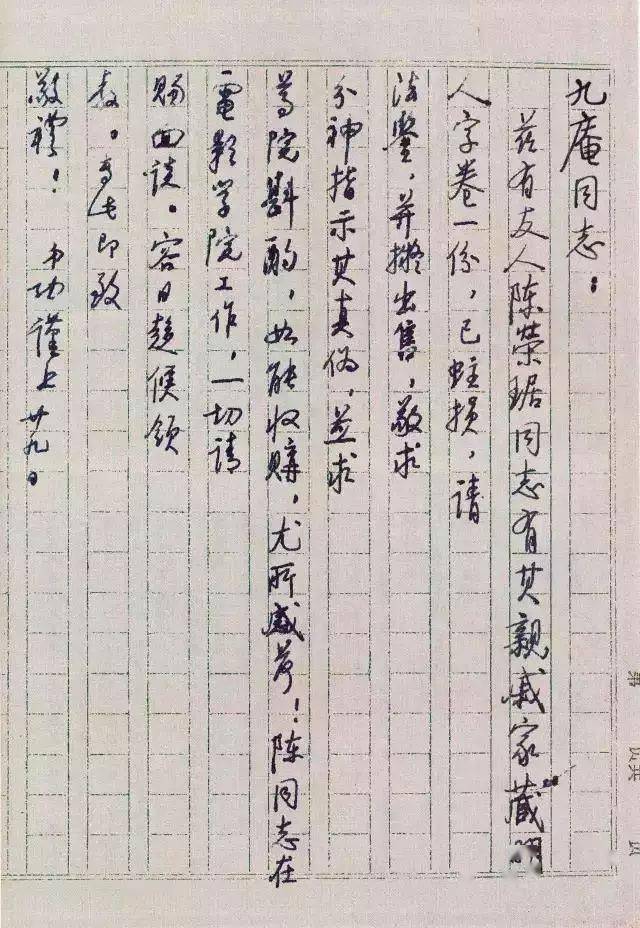 九庵同志：
兹有友人陈荣琚同志有其親戚家藏明
人字卷一份，已蛀损，请
法鉴，并擬出售，敬求
分神指示其真偽，並求
尊院斟酌，如能收購，尤所感荷！陈同志在
電影学院工作，一切请
賜回谈。容日趋候领
教。专此即致
敬禮！ 功謹上 廿九日
第
共